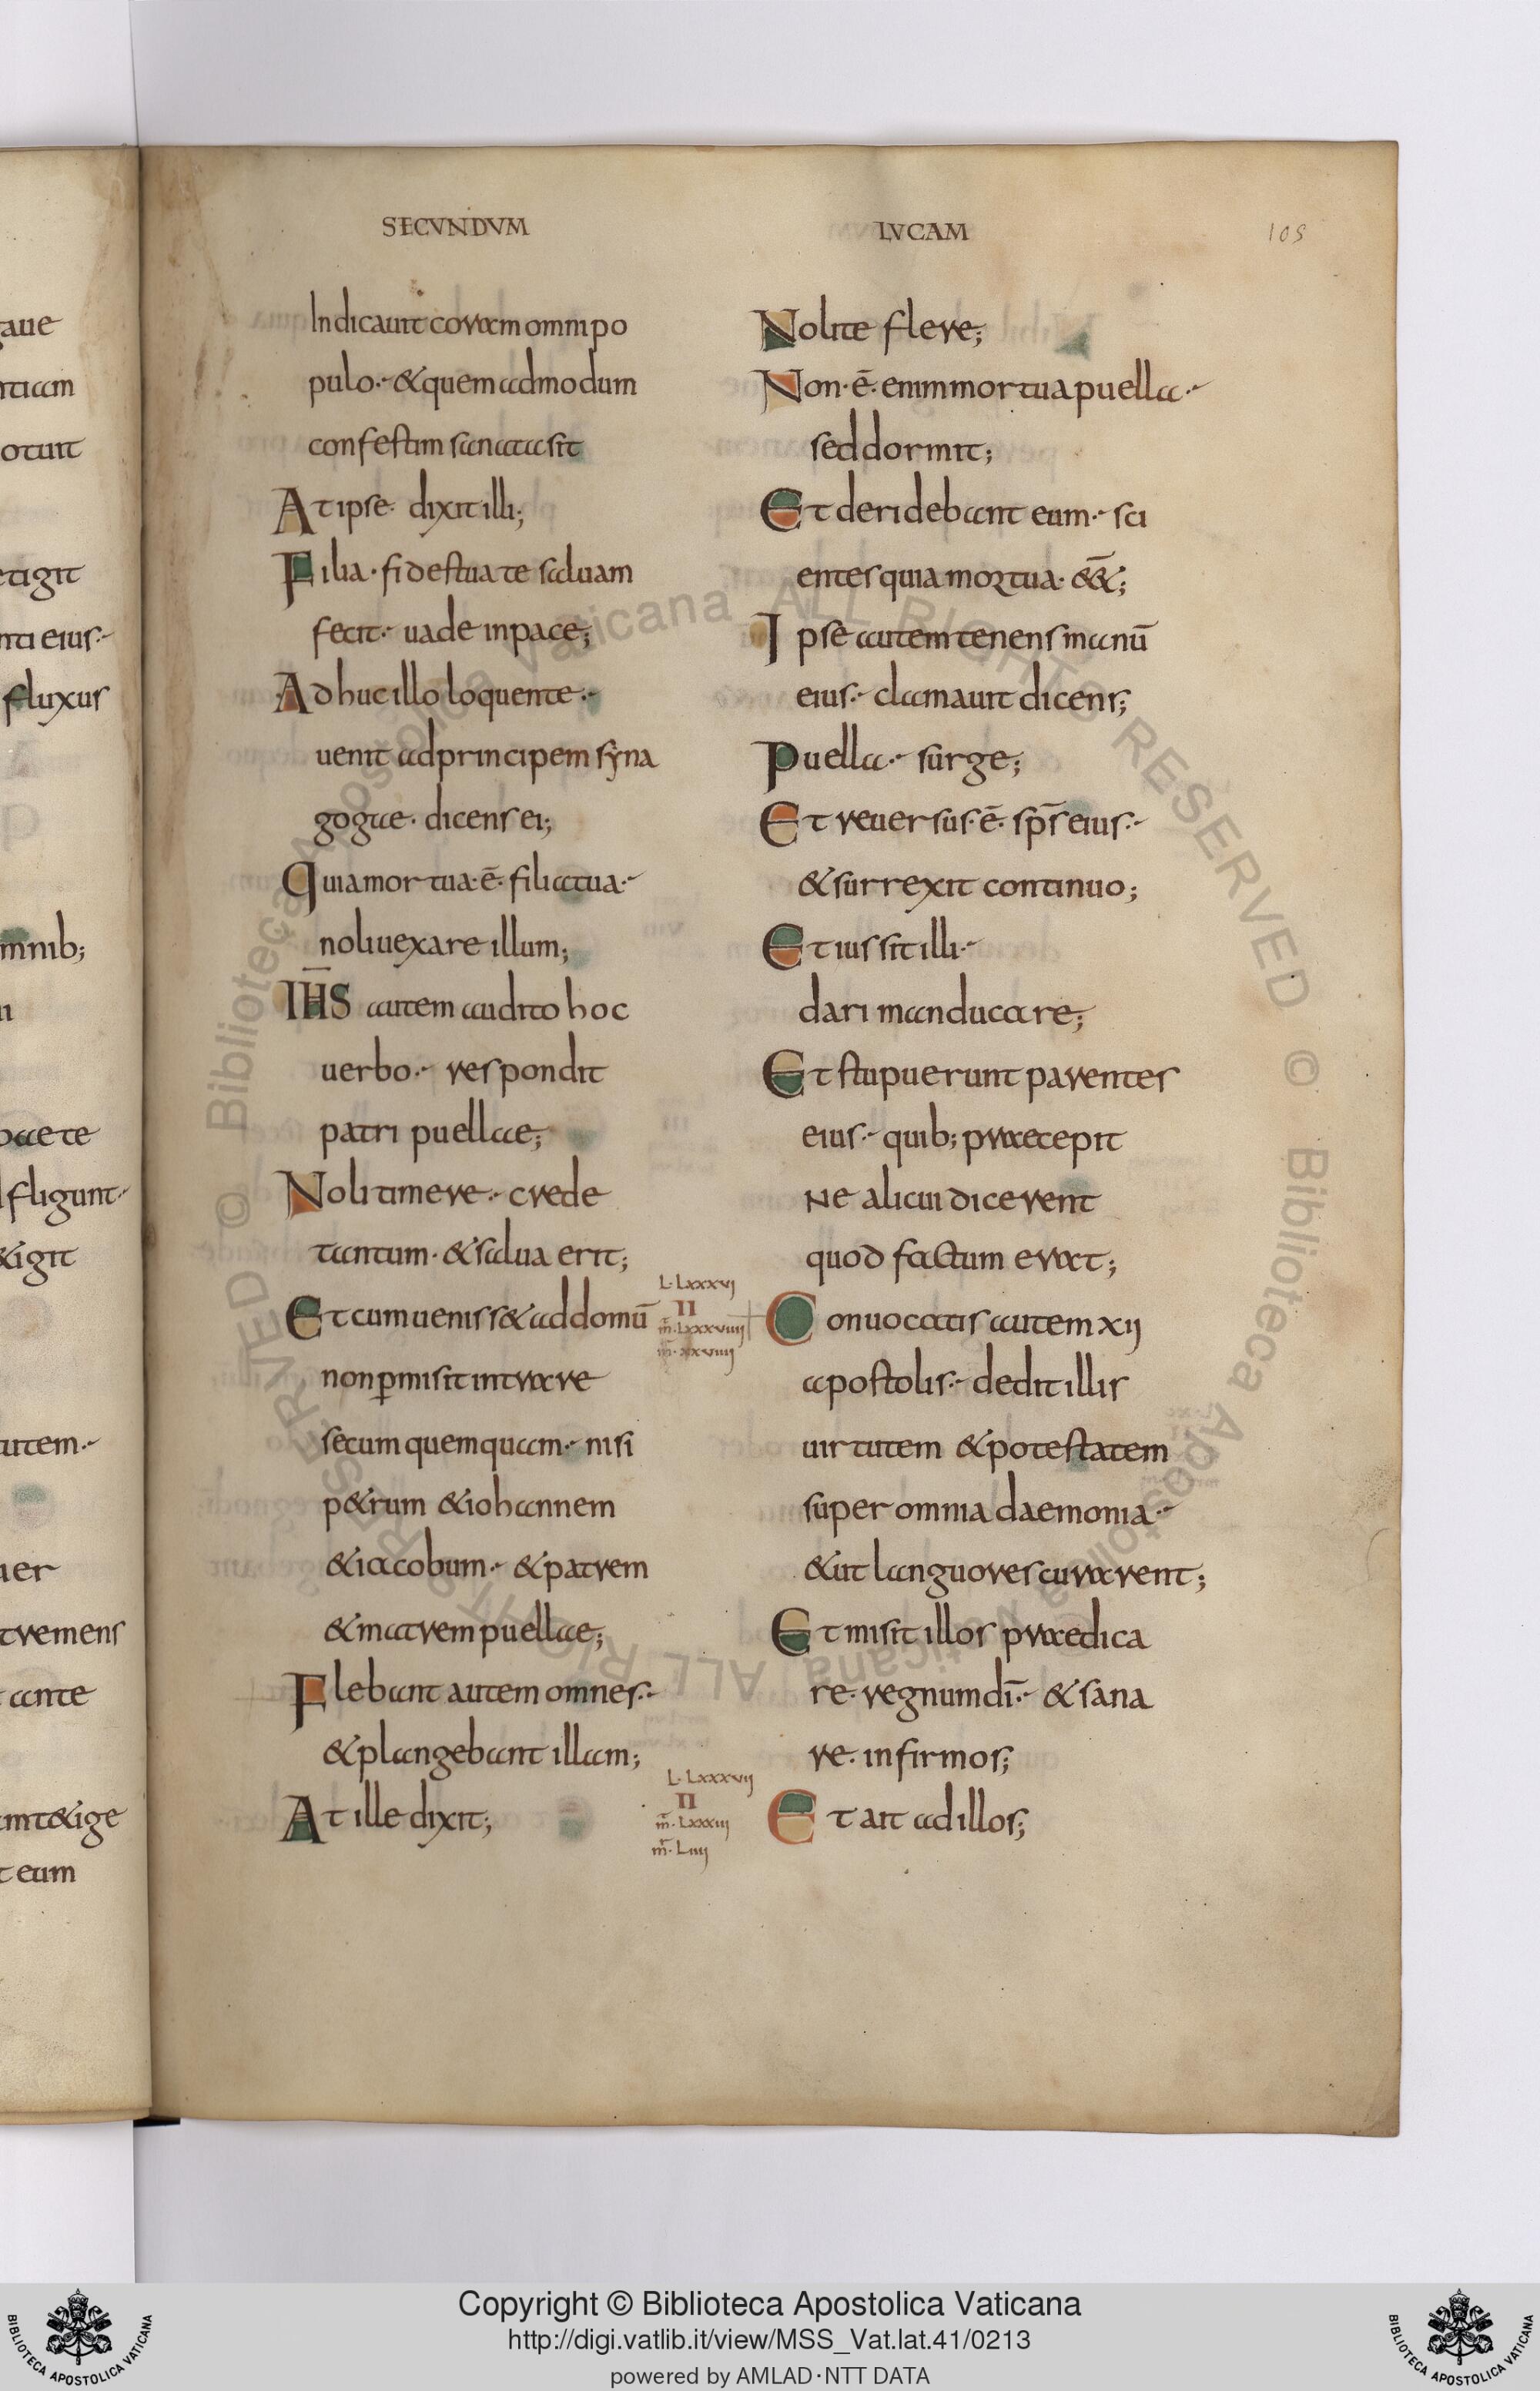 SECVNDVM
LVCAM
105
Indicauit coram omni po
pulo·&quem admodum
confestim sanata sit
At ipse· dixit illi;
Filia·fides tua te saluam
fecit· uade in pace;
Adhuc illo loquente·
uenit ad principem syna
gogae· dicens ei;
Quia mortua·ē· filia tua·
noli uexare illum;
IH̅S autem audito hoc
uerbo· respondit
patri puellae;
Noli timere· crede
tantum·&salua erit;
Et cum uenisset &addomū
non ꝑmisit intrare
secum quemquam· nisi
p&rum &iohannem
&iacobum· &patrem
&matrem puellae;
Flebant autem omnes·
&plangebant illam;
At ille dixit;
Nolite flere;
Non·ē·enim mortua puella·
sed dormit;
Et deridebant eum· sci
entes quia mortua· e&;
Ipse autem tenens manū
eius· clamauit dicens;
Puella· surge;
Et reuersus·ē· sp̅s eius·
&surrexit continuo;
Et iussit illi·
dari manducare;
Et stupuerunt parentes
eius· quib; praecepit
Ne alicui dicerent
quod factum erat;
L·Lxxxvi
II
m̅·Lxxxviiii
m̅·xxviiii
Conuocatis autem xii
apostolis· dedit illis
uirtutem &potestatem
super omnia daemonia·
&ut languores curarent;
Et misit illos praedica
re·regnum dī· &sana
re·infirmos;
L·Lxxxvii
II
m̅·Lxxxii
m̅·Liiii
Et ait ad illos;
Copyright © Biblioteca Apostolica Vaticana
http://digi.vatlib.it/view/MSS_Vat.lat.41/0213
powered by AMLAD·NTT DATA
BIBLIOTECA APOSTOLICA VATICANA
BIBLIOTECA APOSTOLICA VATICANA